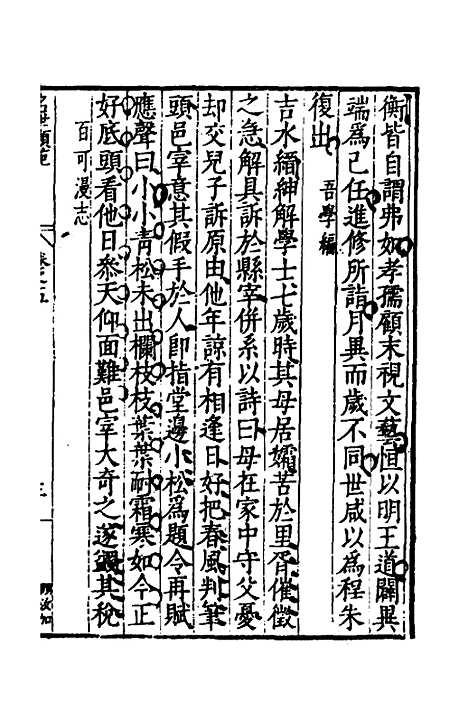 衡皆自謂弗如孝孺顧末視文藝恒以明王道闢異
端爲己任進修所詣月異而歲不同世咸以爲程朱
復出 吾學編
吉水縉紳解學士七歲時其母居孀苦於里胥催徵
之急解具訴於縣宰併系以詩曰母在家中守父憂
却交兒子訴原由他年諒有相逢日好把春風判筆
頭邑宰意其假手於人卽指堂邊小松爲題令再賦
應聲曰小小青松未出欄枝枝葉葉耐霜寒如今正
好底頭看他日叅天仰面難邑宰大奇之遂蠲其稅
百可漫志
卷之五
三